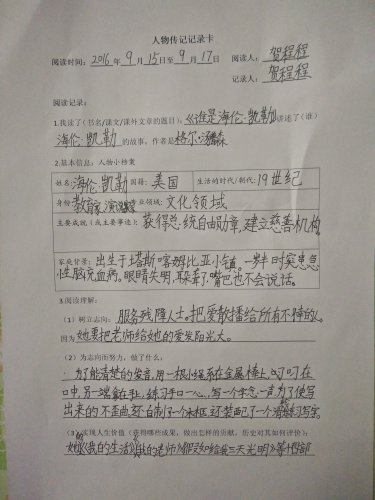 人物传记记录卡
阅读时间：2016年9月15日至9月17日 阅读人：贺程程
记录人：贺程程
阅读记录：
1.我读了（书名/课文/课外文章的题目）：《谁是海伦·凯勒》讲述了（谁）
海伦·凯勒的故事，作者是格尔·汤普森
2.基本信息：人物小档案
姓名：海伦·凯勒 国籍：美国 生活的时代/朝代：19世纪
身份：教育家、演说家 业领域：文化领域
主要成就（或主要事迹）：获得总统自由勋章，建立慈善机构
家庭背景：出生于塔斯喀娜比亚小镇。一岁半时突患急
性脑充血病。眼睛失明，耳朵聋了，嘴巴也不会说话。
3.阅读理解：
（1）树立志向：服务残障人士。把爱散播给所有不障的人
因为她要把老师给她的爱发阳光大。
（2）为志向而努力，做了什么：
为了能清楚的发音，用一根小绳系在金属棒上，叼在口
中，另一端拿在手上，练习手口一心，写一个字念一声，为了使写
出来的不歪曲，还自制了一个木框，还装配了一个滑轮练习写字。
（3）实现人生价值（获得哪些成果，做出怎样的贡献，历史对其如何评价）：
她的《我的生活》《我的老师》《假如给我三天光明》等十四部